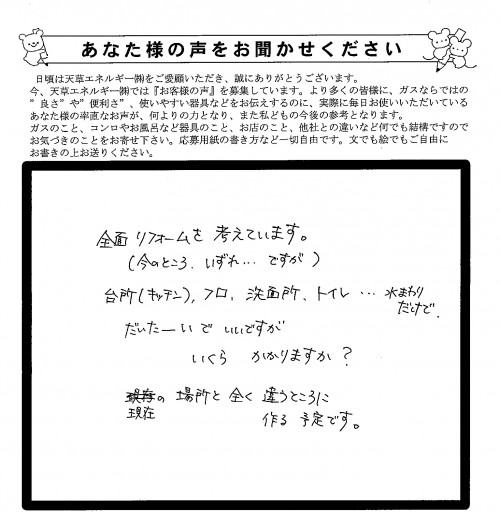 あなた様の声をお聞かせください
日頃は天草エネルギー㈱をご愛顧いただき、誠にありがとうございます。
今、天草エネルギー㈱では『お客様の声』を募集しています。より多くの皆様に、ガスならではの
”良さ”や”便利さ”、使いやすい器具などをお伝えするのに、実際に毎日お使いいただいている
あなた様の率直なお声が、何よりの力となり、また私どもの今後の参考となります。
ガスのこと、コンロやお風呂など器具のこと、お店のこと、他社との違いなど何でも結構ですので
お気づきのことをお寄せ下さい。応募用紙の書き方など一切自由です。文でも絵でもご自由に
お書きの上お送りください。
全面 リフォームを 考えています。
(今のところ、いずれ… ですが)
台所(キッチン)、フロ、洗面所、トイレ … 水まわり
だけで、
だいたーいで いいですが
いくら かかりますか?
現存の 場所と 全く 違うところに
現在
作る 予定です。